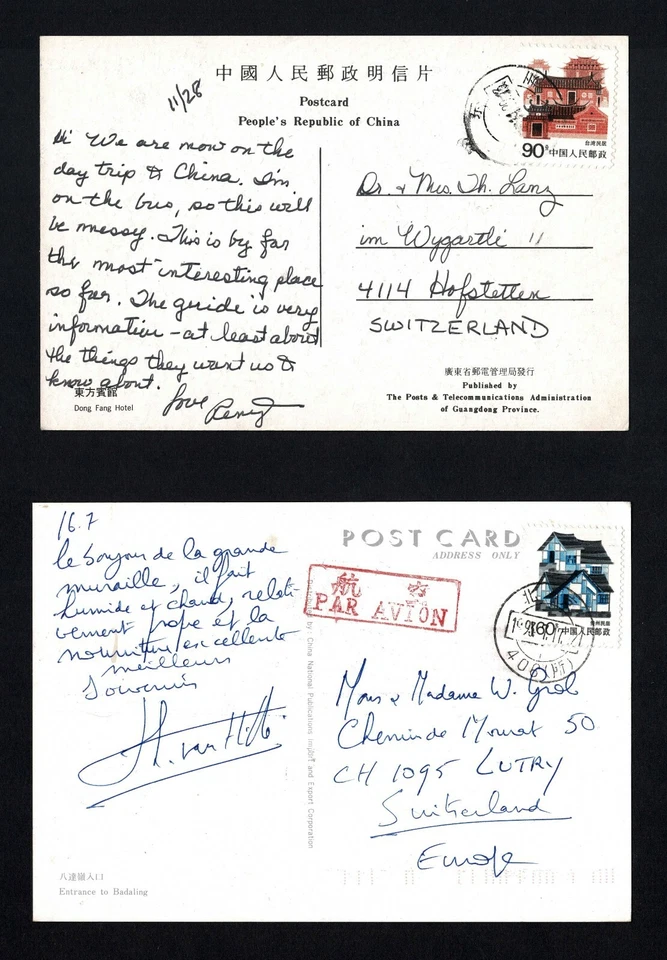 中國人民郵政明信片
Postcard
People's Republic of China
11/28
Hi We are now on the
day trip to China. I'm
on the bus, so this will
be messy. This is by far
the most interesting place
so far. The guide is very
informative - at least about
the things they want us to
know about.
love
東方賓館
Dong Fang Hotel
台湾民居
90分中国人民邮政
Dr. & Mrs. Th. Lanz
im Wygärtli 11
4114 Hofstetten
SWITZERLAND
廣東省郵電管理局發行
Published by
The Posts & Telecommunications Administration
of Guangdong Province.
16.7
le bonjour de la grande
muraille, il fait
humide et chaud, relati-
vement propre et la
nourriture excellente
meilleurs
Souvenirs
POST CARD
ADDRESS ONLY
航 空
PAR AVION
60分中国人民邮政
406(所)
Mons & Madame W. Grob
Chemin de Mourat 50
CH 1095 LUTRY
Switzerland
Europe
by: China National Publications Import and Export Corporation
八達嶺入口
Entrance to Badaling